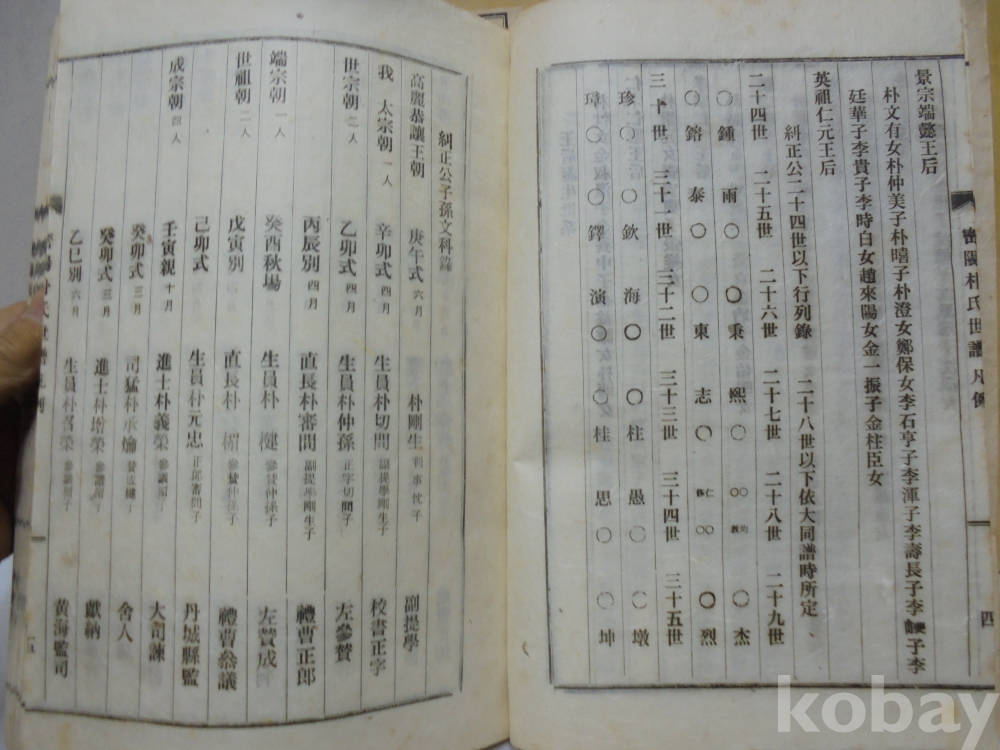 景宗端懿王后
朴文有女朴仲美子朴暿子朴澄女鄭保女李石亨子李渾子李壽長子李
子李
廷華子李貴子李時白女趙來陽女金一振子金柱臣女
英祖仁元王后
糾正公二十四世以下行列錄 二十八世以下依大同譜時所定
二十四世 二十五世 二十六世 二十七世 二十八世 二十九世
〇鍾 雨〇 〇秉 熙〇 〇〇均教 〇杰
鎔〇 泰〇 〇東 志〇 〇〇 〇烈
三十世 三十一世 三十二世 三十三世 三十四世 三十五世
珍〇 〇欽 海〇 〇柱 愚〇 〇墩
璋〇 〇鐸 演〇 〇桂 思〇 〇坤
密陽朴氏世譜 凡例
四
糾正公子孫文科錄
高麗恭讓王朝 庚午式 六月 朴剛生 判事忱子 副提學
我 太宗朝 一人 辛卯式 四月 生員朴切問 副提學剛生子 校書正字
世宗朝 二人 乙卯式 四月 生員朴仲孫 正字切問子 左參贊
丙辰別 四月 直長朴審問 副提學剛生子 禮曹正郎
端宗朝 一人 癸酉秋場 生員朴楗 參贊仲孫子 左贊成
世祖朝 二人 戊寅別 直長朴楣 參贊仲孫子 禮曹叅議
己卯式 生員朴元忠 正郎審問子 丹城縣監
成宗朝 四人 壬寅親 十月 進士朴義榮 參議楣子 大司諫
癸卯式 三月 司猛朴承爚 贊成楗子 舍人
癸卯式 三月 進士朴增榮 參議楣子 獻納
乙巳別 六月 生員朴召榮 參議楣子 黃海監司
五
kobay